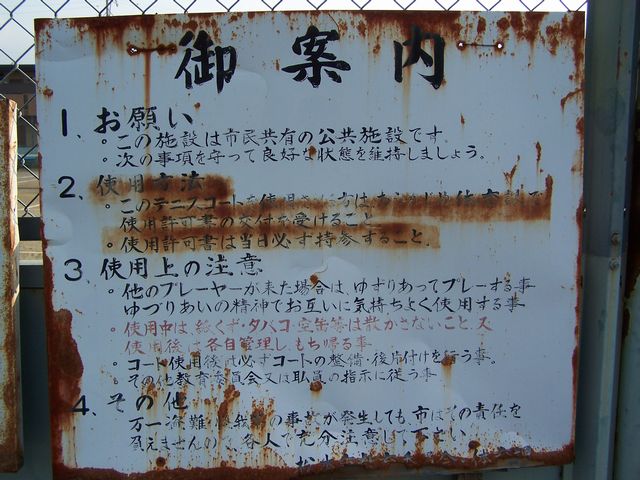 御案内
1. お願い
。この施設は市民共有の公共施設です。
。次の事項を守って良好な状態を維持しましょう。
2. 使用方法
。このテニスコートを使用される方はあらかじめ
使用許可書の交付を受けること
。使用許可書は当日必ず持参すること。
3. 使用上の注意
。他のプレーヤーが来た場合は、ゆずりあってプレーする事
ゆづりあいの精神でお互いに気持ちよく使用する事
。使用中は紙くず・タバコ・空缶等は散かさないこと、又
使用後は各自管理し、もち帰る事
。コート使用後は必ずコートの整備・後片付けを行う事。
。その他教育委員会又は職員の指示に従う事
4. その他
万一盗難 の事故が発生しても、市はその責任を
負えませんので、各人で充分注意して下さい